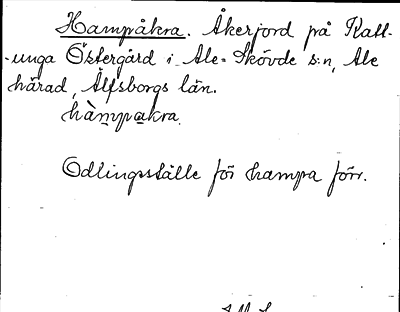 Hampåkra. Åkerjord på Katt-
-unga Östergård i Ale-Skövde s:n, Ale
härad, Älfsborgs län.
hàmpakra.
Odlingsställe för hampa förr.